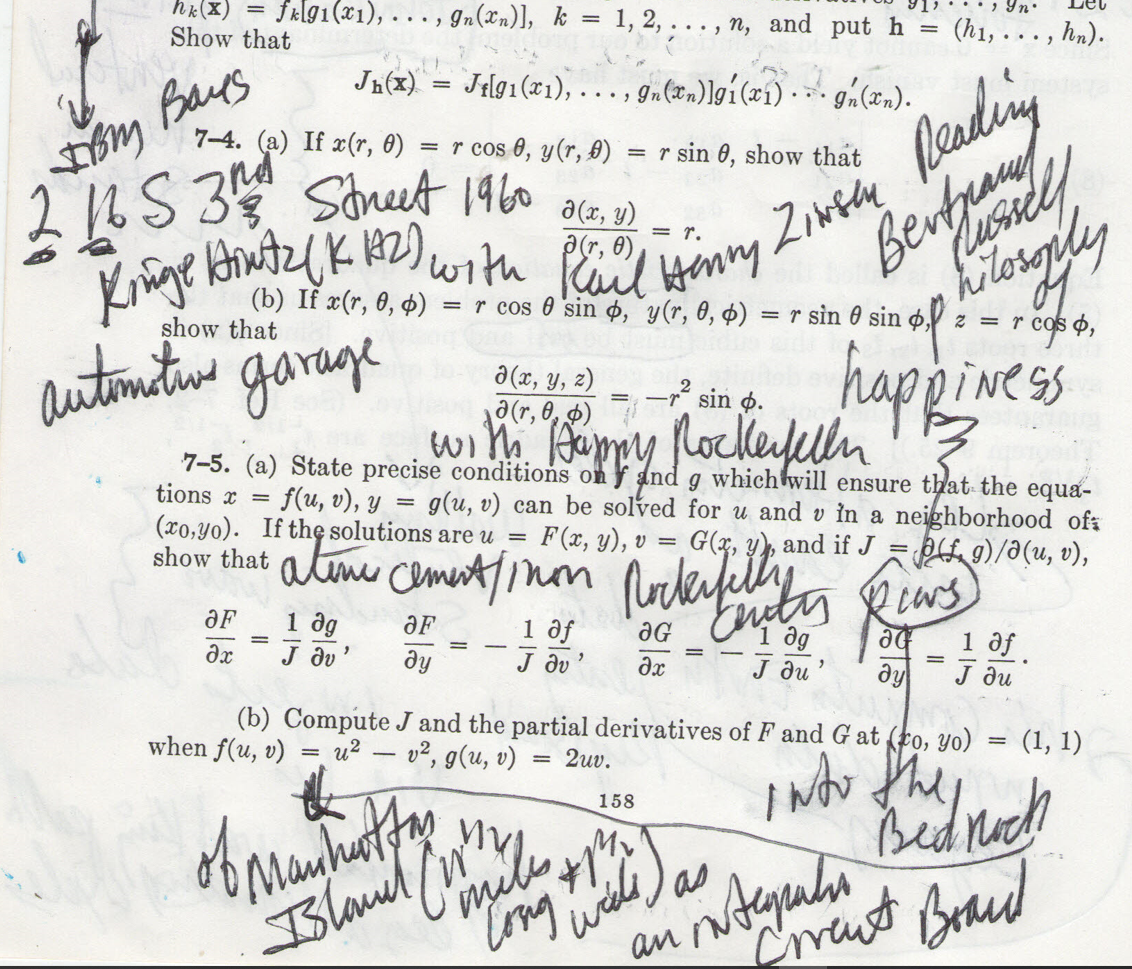 h_k(x) = f_k[g_1(x_1), . . . , g_n(x_n)], k = 1, 2, . . . , n, and put h = (h_1, . . . , h_n).
Show that
J_h(x) = J_f[g_1(x_1), . . . , g_n(x_n)]g_1'(x_1) · · · g_n'(x_n).
IBM Bars
7–4. (a) If x(r, θ) = r cos θ, y(r, θ) = r sin θ, show that
Reading
2 S 3rd Street 1960
∂(x, y)/∂(r, θ) = r.
Bertrand Russell philosophy
with Karl Harry
(b) If x(r, θ, φ) = r cos θ sin φ, y(r, θ, φ) = r sin θ sin φ, z = r cos φ,
show that
automotive garage
∂(x, y, z)/∂(r, θ, φ) = −r² sin φ.
happiness
with Happy Rockerfeller
7–5. (a) State precise conditions on f and g which will ensure that the equa-
tions x = f(u, v), y = g(u, v) can be solved for u and v in a neighborhood of
(x_0,y_0). If the solutions are u = F(x, y), v = G(x, y), and if J = ∂(f, g)/∂(u, v),
show that
Rockerfeller
center piers
∂F/∂x = 1/J ∂g/∂v, ∂F/∂y = − 1/J ∂f/∂v, ∂G/∂x = − 1/J ∂g/∂u, ∂G/∂y = 1/J ∂f/∂u.
(b) Compute J and the partial derivatives of F and G at (x_0, y_0) = (1, 1)
when f(u, v) = u² − v², g(u, v) = 2uv.
158
into the
Bedrock
of Manhattan
Island miles long wide) as
an
Circuit Board